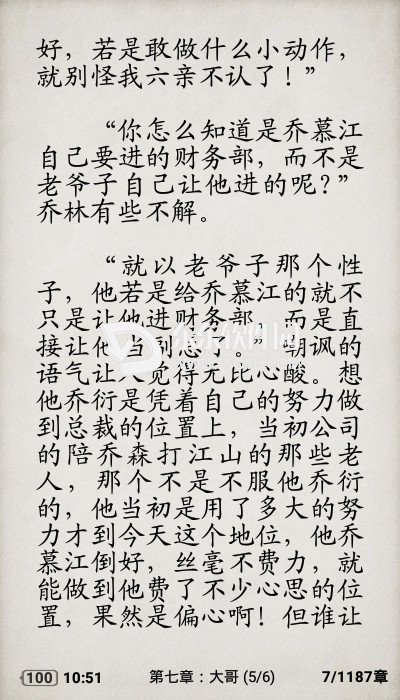 好，若是敢做什么小动作，
就别怪我六亲不认了！”
“你怎么知道是乔慕江
自己要进的财务部，而不是
老爷子自己让他进的呢？”
乔林有些不解。
“就以老爷子那个性
子，他若是给乔慕江的就不
只是让他进财务部，而是直
接让他当副总了。”嘲讽的
语气让人觉得无比心酸。想
他乔衍是凭着自己的努力做
到总裁的位置上，当初公司
的陪乔森打江山的那些老
人，那个不是不服他乔衍
的，他当初是用了多大的努
力才到今天这个地位，他乔
慕江倒好，丝毫不费力，就
能做到他费了不少心思的位
置，果然是偏心啊！但谁让
100 10:51 第七章：大哥 (5/6) 7/1187章